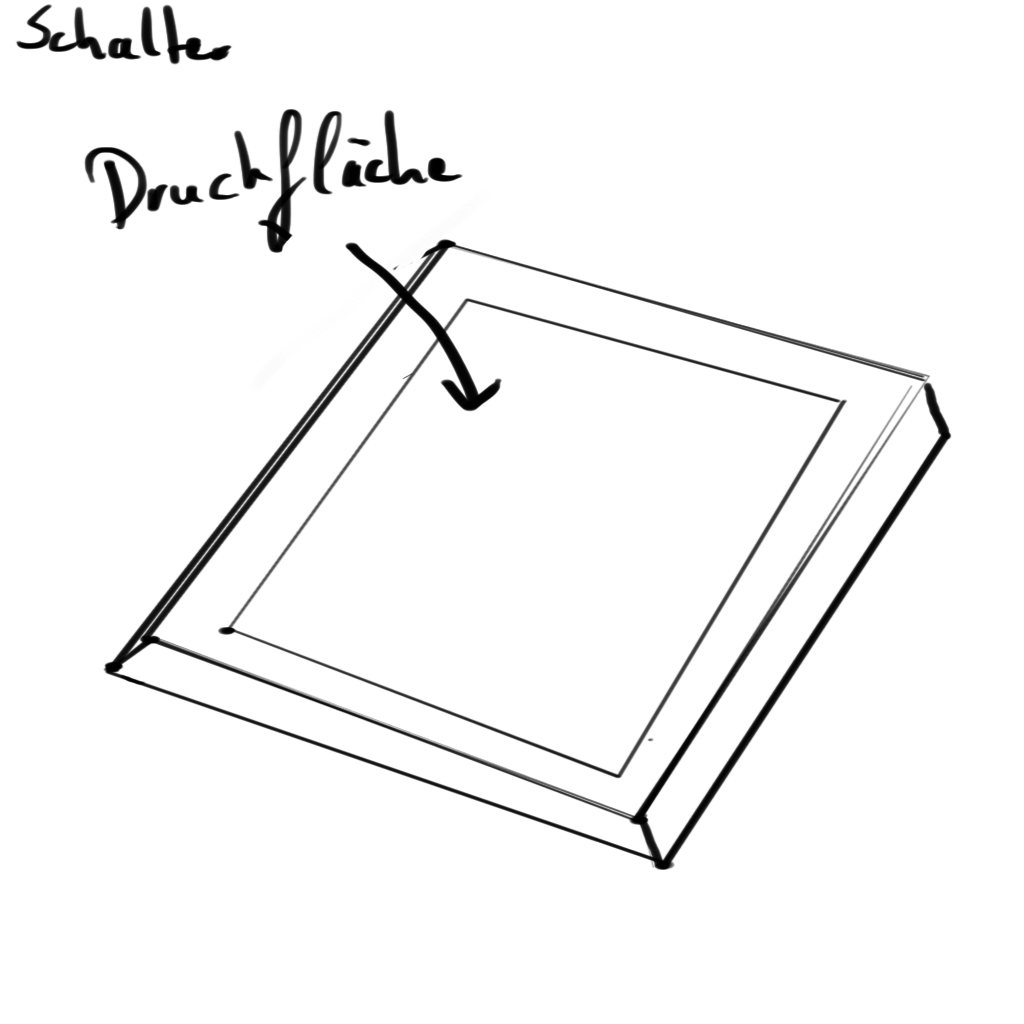 Schalter
Druckfläche